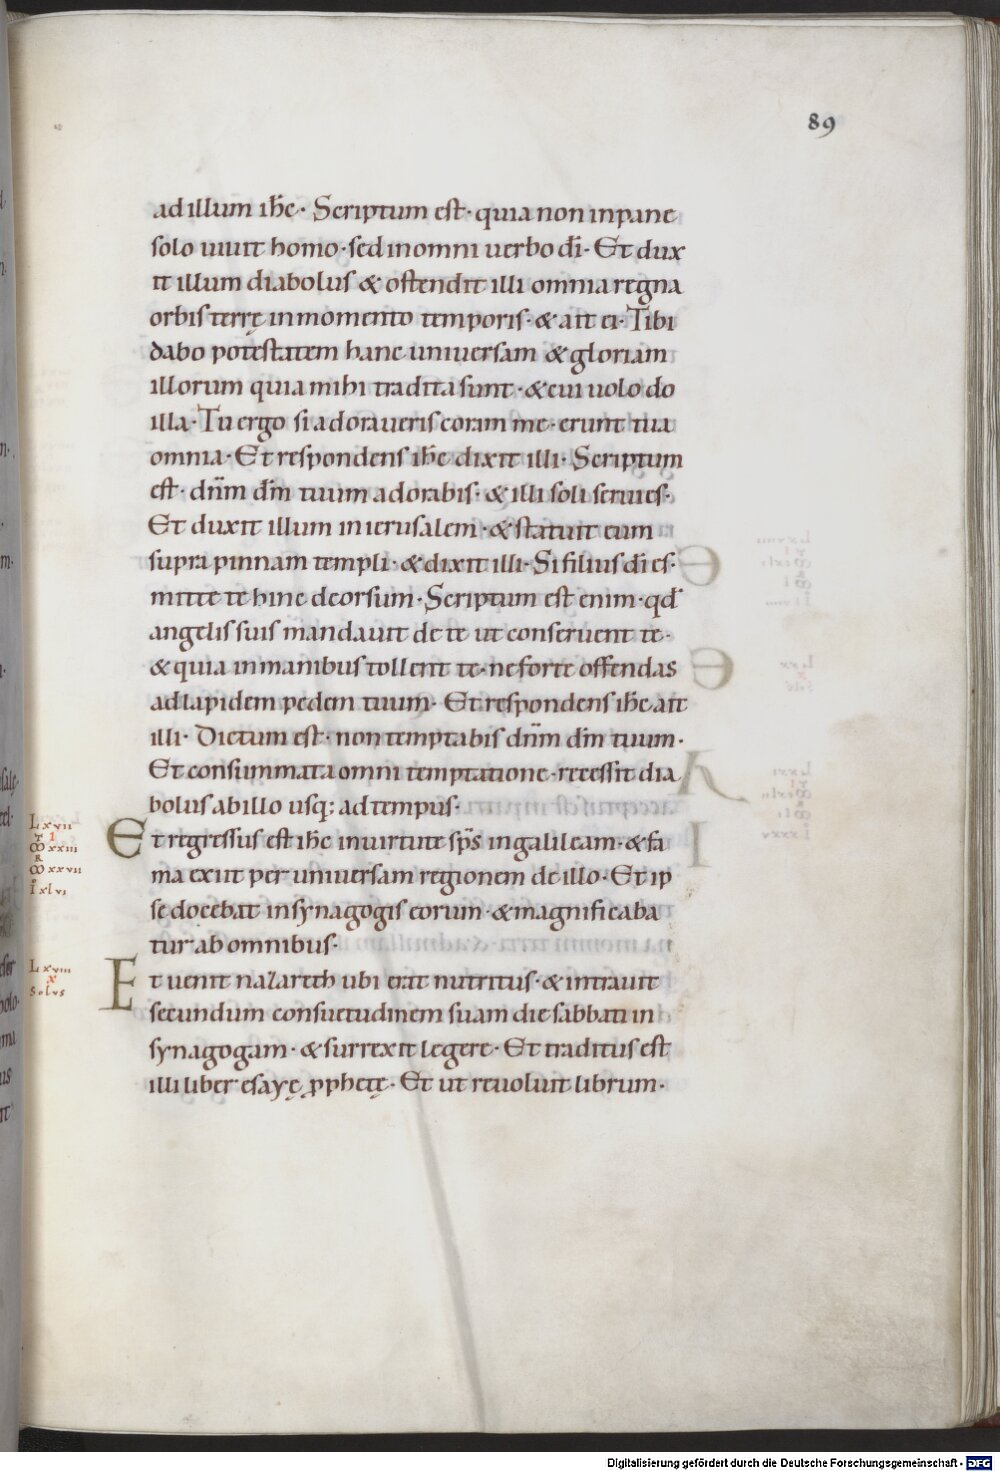 89
ad illum ihc· Scriptum est· quia non in pane
solo uiuit homo· sed in omni uerbo di· Et dux
it illum diabolus & ostendit illi omnia regna
orbis terrę in momento temporis· & ait ei· Tibi
dabo potestatem hanc uniuersam & gloriam
illorum quia mihi tradita sunt· & cui uolo do
illa· Tu ergo si adoraueris coram me· erunt tua
omnia· Et respondens ihc dixit illi· Scriptum
est· dnm dm tuum adorabis· & illi soli seruies·
Et duxit illum in ierusalem· & statuit eum
supra pinnam templi· & dixit illi· Si filius di es·
mitte te hinc deorsum· Scriptum est enim· qd
angelis suis mandauit de te ut conseruent te·
& quia in manibus tollent te· ne forte offendas
ad lapidem pedem tuum· Et respondens ihc ait
illi· Dictum est· non temptabis dnm dm tuum·
Et consummata omni temptatione· recessit dia
bolus ab illo usq; ad tempus·
Et regressus est ihc in uirtute sps in galileam· & fa
ma exiit per uniuersam regionem de illo· Et ip
se docebat in synagogis eorum· & magnificaba
tur ab omnibus·
Et uenit nazareth ubi erat nutritus· & intrauit
secundum consuetudinem suam die sabbati in
synagogam· & surrexit legere· Et traditus est
illi liber esayę pphetę· Et ut reuoluit librum·
L xvii
I
xxiii
xxvii
I xlvi
L xviii
x
Solus
Digitalisierung gefördert durch die Deutsche Forschungsgemeinschaft - DFG